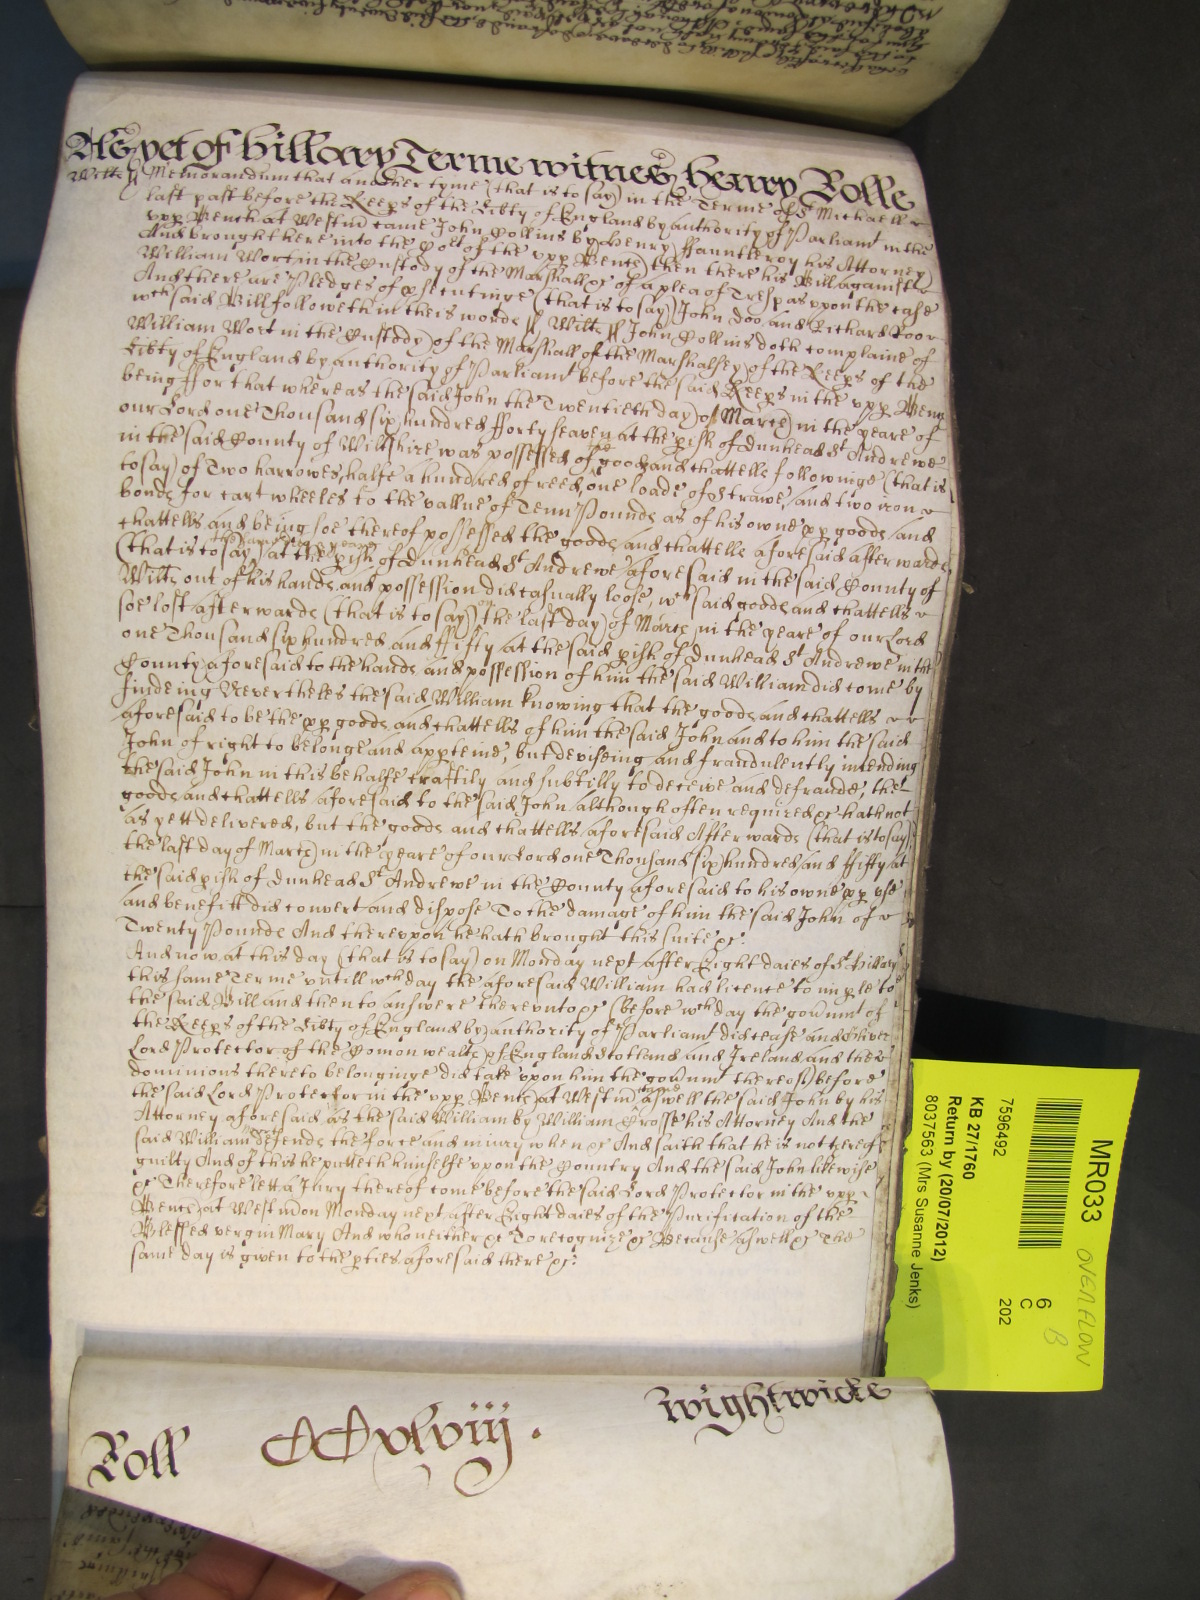 As yet of Hillary Terme witnes Henry Rolle
Wilts ss Memorandum that another tyme (that is to say) in the Terme of St Michaell
last past before the Keeps of the Libty of England by authority of Parliamt in the
upp Bench at Westm came John Collins by Henry Fauntleroy his Attorney
And brought here into the Cort of the upp Bench then there his Bill against
William Wort in the Custody of the Marshall &c of a plea of Trespas upon the case
And there are Pledges of psecutinge (that is to say) John Doo and Richard Roo
wch said Bill followeth in theis words ss Wilts ss John Collins doth complaine of
William Wort in the Custody of the Marshall of the Marshalsey of the Keeps of the
Libty of England by authority of Parliamt before the said Keeps in the upp Bench
being ffor that whereas the said John the Twentieth day of March in the yeare of
our Lord one Thousand six hundred fforty seaven at the pish of Dunhead St Andrewe
in the said County of Wiltshire was possessed of the goods and chattells followinge (that is
to say) of Two harrowes, halfe a hundred of reed, one loade of strawe, and two iron
bonds for cart wheeles to the vallue of Tenn Pounds as of his owne pp goods and
chattells and being soe thereof possessed the goods and chattells aforesaid afterwards
(that is to say) the same day & yeare at the pish of Dunhead St Andrewe aforesaid in the said County of
Wilts out of his hands and possession did casually loose, wch said goods and chattells
soe lost afterwards (that is to say) on the last day of March in the yeare of our Lord
one Thousand six hundred and ffifty at the said pish of Dunhead St Andrewe in the
County aforesaid to the hands and possession of him the said William did come by
findeing Nevertheles the said William knowing that the goods and chattells
aforesaid to be the pp goods and chattells of him the said John and to him the said
John of right to belonge and appteine, but deviseing and fraudulently intending
the said John in this behalfe craftily and subtilly to deceive and defraude, the
goods and chattells aforesaid to the said John although often required &c hath not
as yett delivered, but the goods and chattells aforesaid Afterwards (that is to say)
the last day of March in the yeare of our Lord one Thousand six hundred and ffifty at
the said pish of Dunhead St Andrewe in the County aforesaid to his owne pp use
and benefitt did convert and dispose To the damage of him the said John of
Twenty Pounds And thereupon he hath brought this suite &c.
And now at this day (that is to say) on Monday next after Eight daies of St Hillary
this same Terme untill wch day the aforesaid William had licence to imple to
the said Bill and then to answere thereunto &c (before wch day the govnmt of
the Keeps of the Libty of England by authority of Parliamt did cease and Oliver
Lord Protector of the Comon wealth of England Scotland and Ireland and the
dominions thereto belonginge did take upon him the govnmt thereof) before
the said Lord Protector in the upp Bench at Westm came aswell the said John by his
Attorney aforesaid as the said William by William Crosse his Attorney And the
said William Defends the force and iniury when &c And saith that he is not thereof
guilty And of this he putteth himselfe upon the Country And the said John likewise
&c Therefore lett a Jury thereof come before the said Lord Protector in the upp
Bench at Westm on Monday next after Eight daies of the Purification of the
Blessed vergin Mary And who neither &c To recognize &c Because aswell &c The
same day is given to the pties aforesaid there &c:
Wightwicke
Roll CCxlviij.
MR033 OVERFLOW
B
6
C
202
7596492
KB 27/1760
Return by (20/07/2012)
8037563 (Mrs Susanne Jenks)